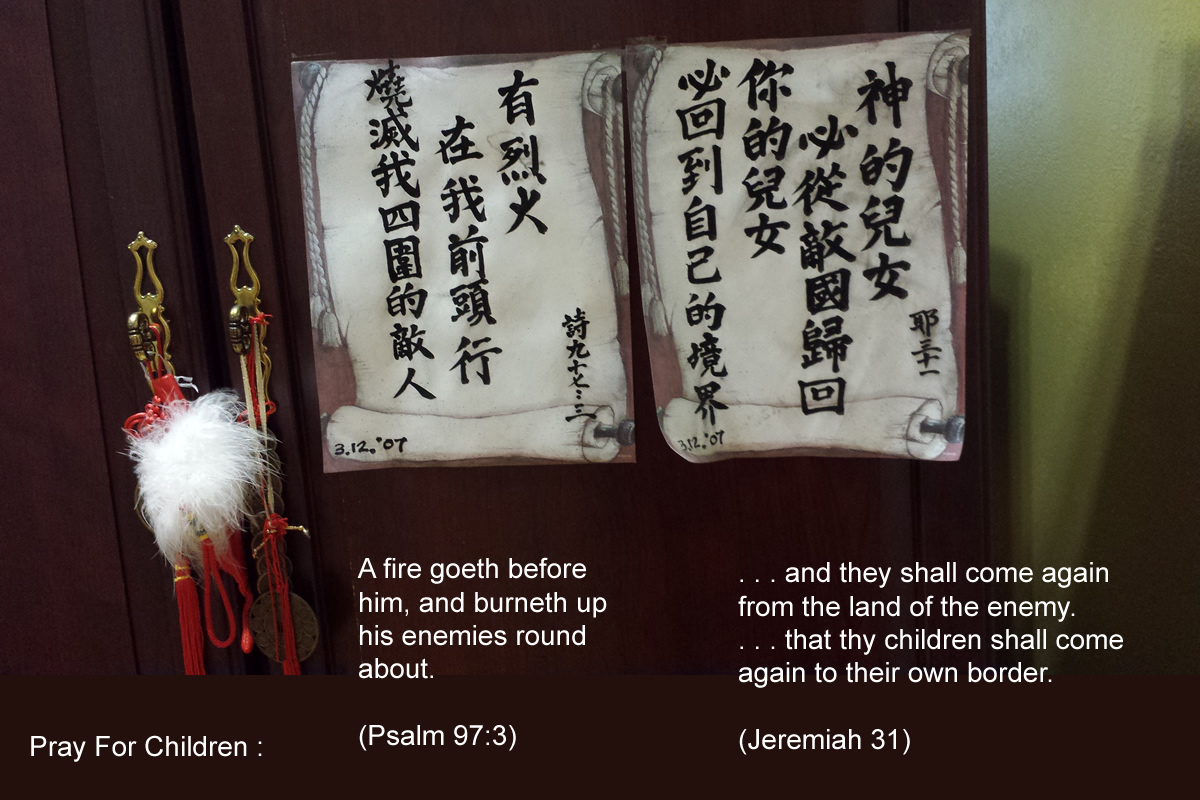 有烈火
在我前頭行
燒滅我四圍的敵人
詩九十七:三
3.12.'07
耶三十一
神的兒女
必從敵國歸回
你的兒女
必回到自己的境界
3.12.'07
A fire goeth before
him, and burneth up
his enemies round
about.
(Psalm 97:3)
. . . and they shall come again
from the land of the enemy.
. . . that thy children shall come
again to their own border.
(Jeremiah 31)
Pray For Children :